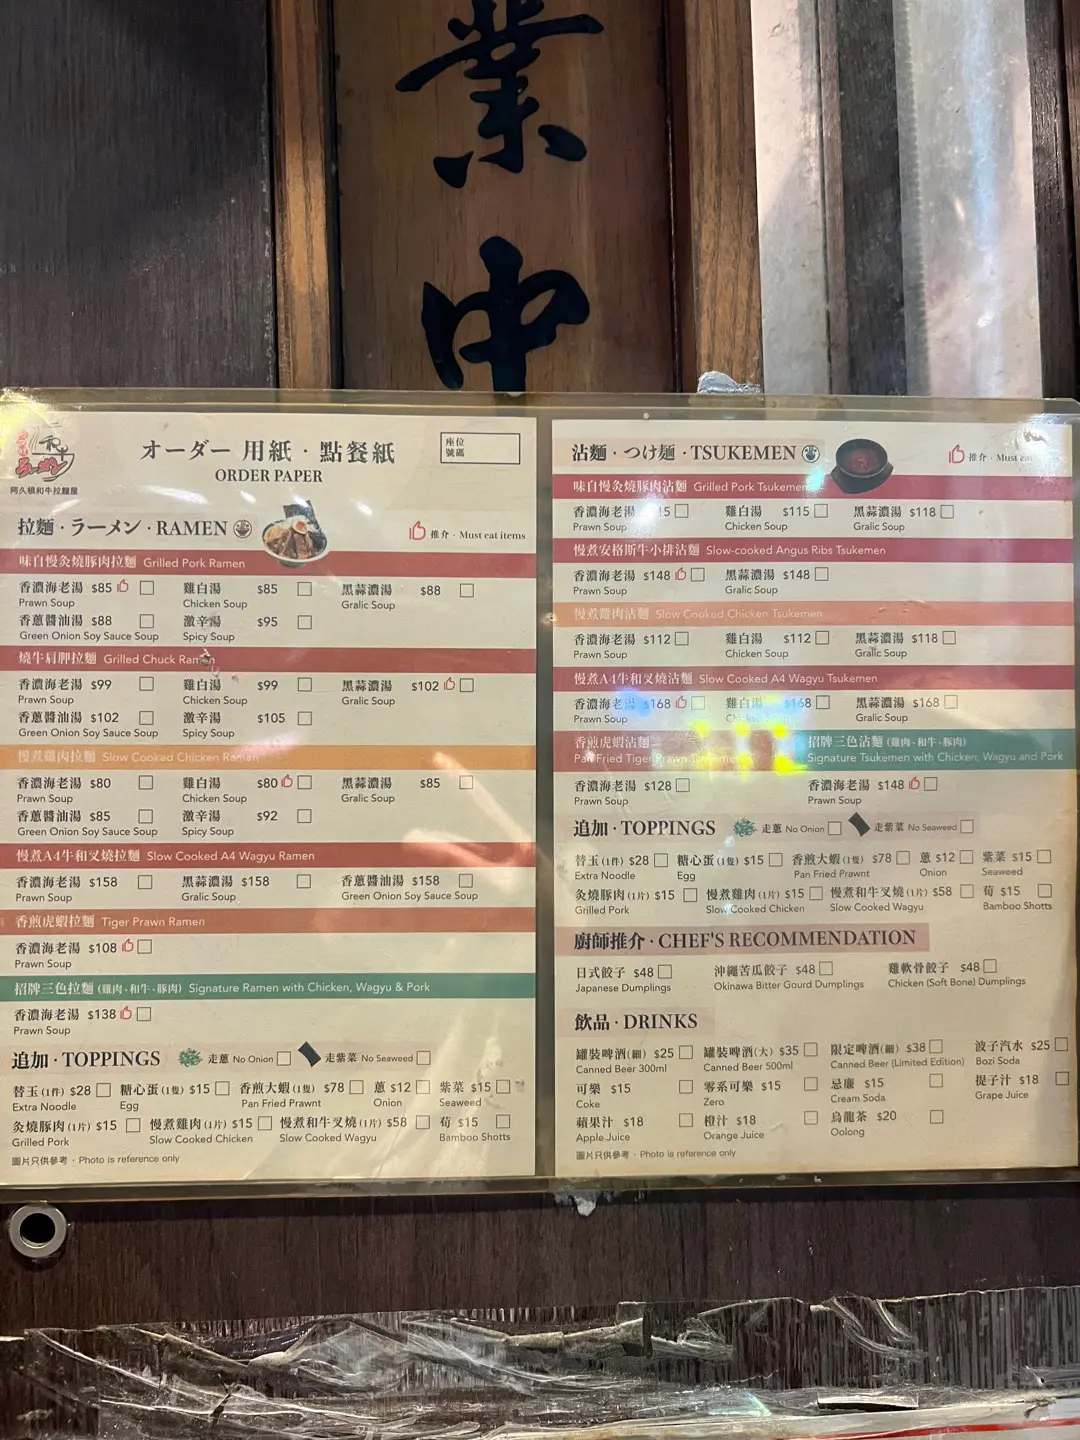 業
中
阿久根和牛拉麵屋
オーダー 用紙・點餐紙
ORDER PAPER
座位
號碼
拉麵・ラーメン・RAMEN
推介・Must eat items
味自慢灸燒豚肉拉麵 Grilled Pork Ramen
香濃海老湯 $85 雞白湯 $85 黑蒜濃湯 $88
Prawn Soup Chicken Soup Gralic Soup
香蔥醬油湯 $88 激辛湯 $95
Green Onion Soy Sauce Soup Spicy Soup
燒牛肩胛拉麵 Grilled Chuck Ramen
香濃海老湯 $99 雞白湯 $99 黑蒜濃湯 $102
Prawn Soup Chicken Soup Gralic Soup
香蔥醬油湯 $102 激辛湯 $105
Green Onion Soy Sauce Soup Spicy Soup
慢煮雞肉拉麵 Slow Cooked Chicken Ramen
香濃海老湯 $80 雞白湯 $80 黑蒜濃湯 $85
Prawn Soup Chicken Soup Gralic Soup
香蔥醬油湯 $85 激辛湯 $92
Green Onion Soy Sauce Soup Spicy Soup
慢煮A4牛和叉燒拉麵 Slow Cooked A4 Wagyu Ramen
香濃海老湯 $158 黑蒜濃湯 $158 香蔥醬油湯 $158
Prawn Soup Gralic Soup Green Onion Soy Sauce Soup
香煎虎蝦拉麵 Tiger Prawn Ramen
香濃海老湯 $108
Prawn Soup
招牌三色拉麵 (雞肉、和牛、豚肉) Signature Ramen with Chicken, Wagyu & Pork
香濃海老湯 $138
Prawn Soup
追加・TOPPINGS 走蔥 No Onion 走紫菜 No Seaweed
替玉(1件) $28 糖心蛋(1隻) $15 香煎大蝦(1隻) $78 蔥 $12 紫菜 $15
Extra Noodle Egg Pan Fried Prawnt Onion Seaweed
灸燒豚肉(1片) $15 慢煮雞肉(1片) $15 慢煮和牛叉燒(1片) $58 荀 $15
Grilled Pork Slow Cooked Chicken Slow Cooked Wagyu Bamboo Shotts
圖片只供參考・Photo is reference only
沾麵・つけ麵・TSUKEMEN
推介・Must eat
味自慢灸燒豚肉沾麵 Grilled Pork Tsukemen
香濃海老湯 雞白湯 $115 黑蒜濃湯 $118
Prawn Soup Chicken Soup Gralic Soup
慢煮安格斯牛小排沾麵 Slow-cooked Angus Ribs Tsukemen
香濃海老湯 $148 黑蒜濃湯 $148
Prawn Soup Gralic Soup
慢煮雞肉沾麵 Slow Cooked Chicken Tsukemen
香濃海老湯 $112 雞白湯 $112 黑蒜濃湯 $118
Prawn Soup Chicken Soup Gralic Soup
慢煮A4牛和叉燒沾麵 Slow Cooked A4 Wagyu Tsukemen
香濃海老湯 $168 雞白湯 $168 黑蒜濃湯 $168
Prawn Soup Chicken Soup Gralic Soup
香煎虎蝦沾麵
Pan Fried Tiger Prawn Tsukemen
招牌三色沾麵 (雞肉、和牛、豚肉)
Signature Tsukemen with Chicken, Wagyu and Pork
香濃海老湯 $128 香濃海老湯 $148
Prawn Soup Prawn Soup
追加・TOPPINGS 走蔥 No Onion 走紫菜 No Seaweed
替玉(1件) $28 糖心蛋(1隻) $15 香煎大蝦(1隻) $78 蔥 $12 紫菜 $15
Extra Noodle Egg Pan Fried Prawnt Onion Seaweed
灸燒豚肉(1片) $15 慢煮雞肉(1片) $15 慢煮和牛叉燒(1片) $58 荀 $15
Grilled Pork Slow Cooked Chicken Slow Cooked Wagyu Bamboo Shotts
廚師推介・CHEF'S RECOMMENDATION
日式餃子 $48 沖繩苦瓜餃子 $48 雞軟骨餃子 $48
Japanese Dumplings Okinawa Bitter Gourd Dumplings Chicken (Soft Bone) Dumplings
飲品・DRINKS
罐裝啤酒(細) $25 罐裝啤酒(大) $35 限定啤酒(細) $38 波子汽水 $25
Canned Beer 300ml Canned Beer 500ml Canned Beer (Limited Edition) Bozi Soda
可樂 $15 零系可樂 $15 忌廉 $15 提子汁 $18
Coke Zero Cream Soda Grape Juice
蘋果汁 $18 橙汁 $18 烏龍茶 $20
Apple Juice Orange Juice Oolong
圖片只供參考・Photo is reference only